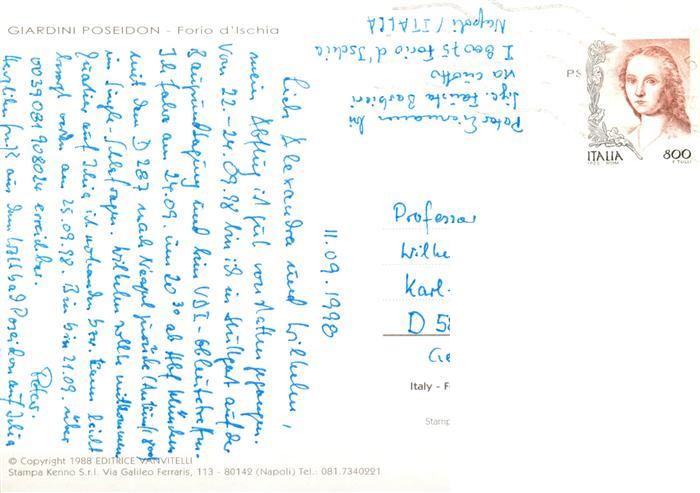 GIARDINI POSEIDON - Forio d'Ischia
11.09.1998
Liebe Alexandra und Wilhelm,
mein Abflug ist gut von statten gegangen.
Vom 22.-24.09.98 bin ich in Stuttgart auf der
und beim VDI-
Ich fahre am 24.09. um 20 30 ab Hbf München
mit dem D 287 nach Neapel zurück (Ankunft 800
im Single-Schlafwagen. Wilhelm wollte mitkommen
Quartier auf Ischia ist vorhanden bzw. kann leicht
besorgt werden am 25.09.98. Bin bis 21.09. über
0039081908024 erreichbar.
Herzlichen Gruß aus dem Poseidon auf Ischia
Peter.
Peter bei
Sig. Fausta Barbieri
via cuotto
I 80075 Forio d'Ischia
Napoli / ITALIA
PS
ITALIA 800
Professor
Wilhe
Karl-
D 58
Ge
Italy - F
Stamp
© Copyright 1988 EDITRICE VANVITELLI
Stampa Kenno S.r.l. Via Galileo Ferraris, 113 - 80142 (Napoli) Tel.: 081.7340221